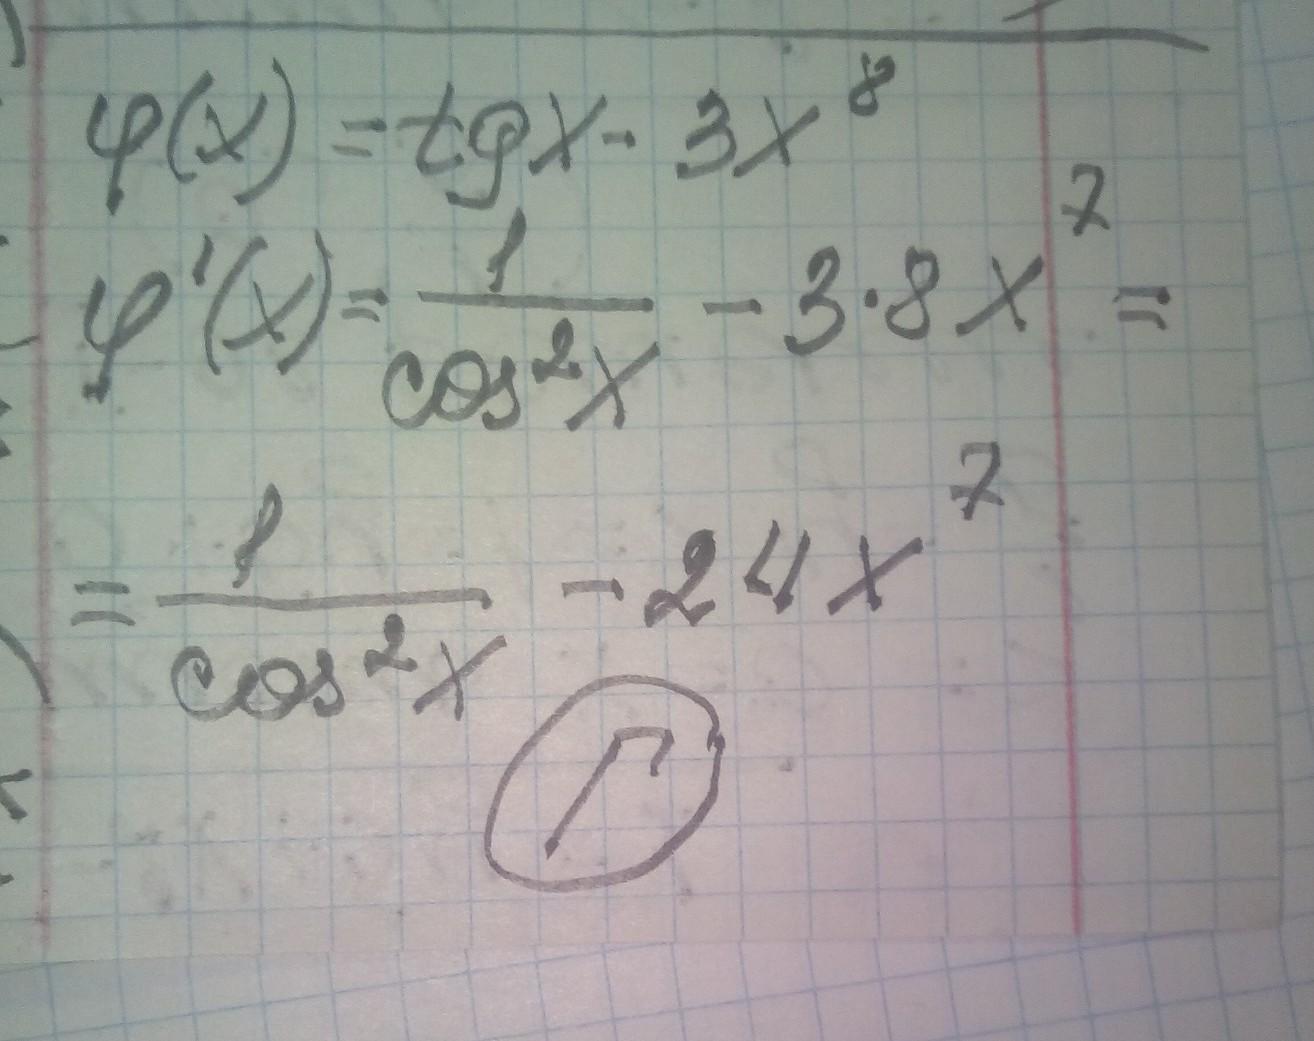 φ(x) = tgx - 3x⁸
φ'(x) = 1/cos²x - 3·8x⁷ =
= 1/cos²x - 24x⁷
Г